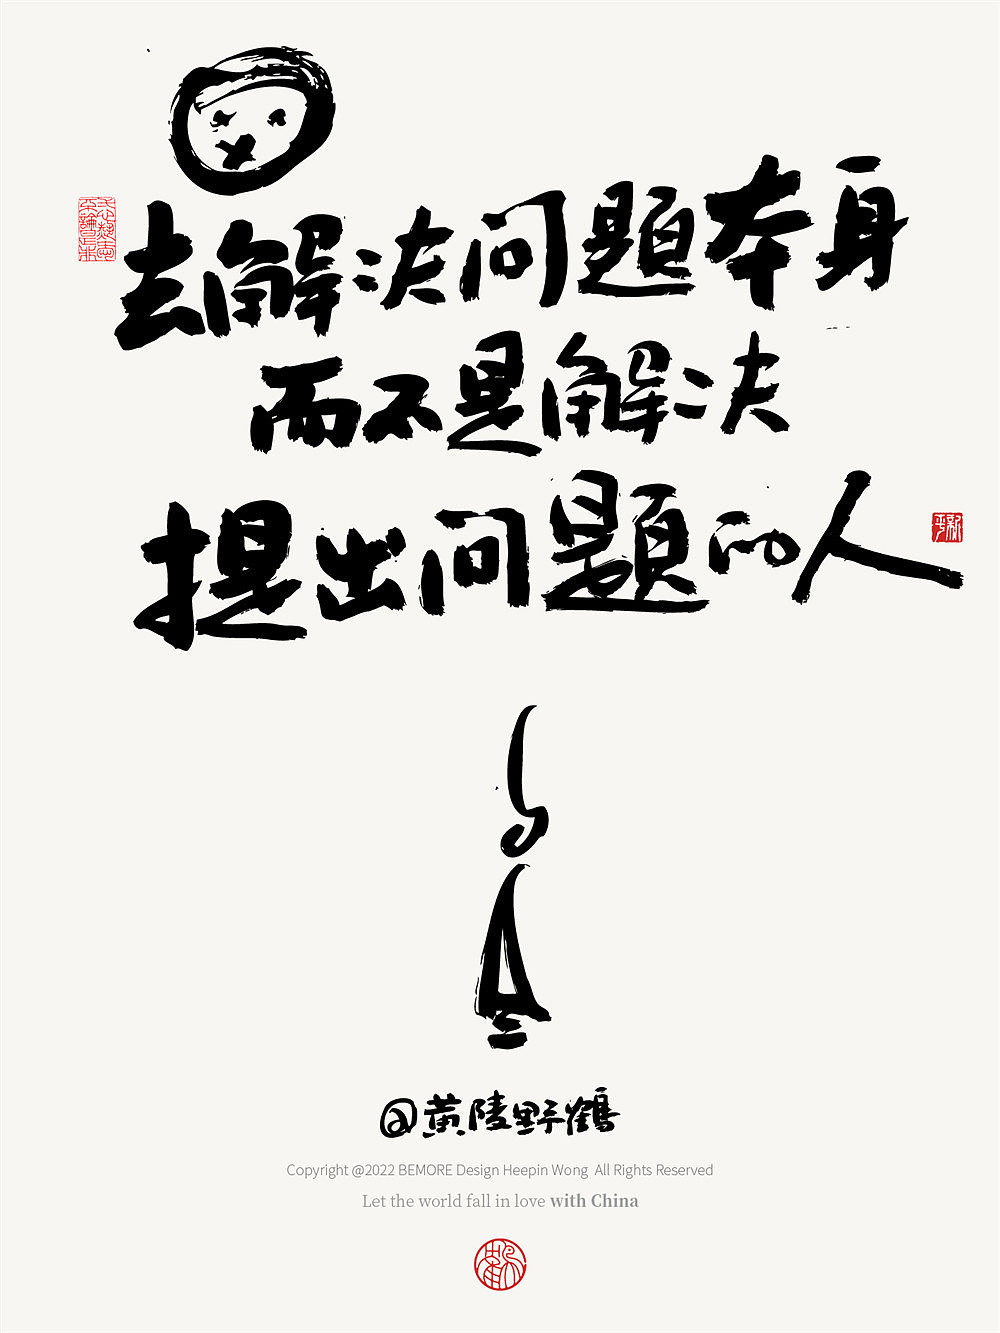 去解决问题本身
而不是解决
提出问题的人
@黄陵野鹤
Copyright @2022 BEMORE Design Heepin Wong All Rights Reserved
Let the world fall in love with China